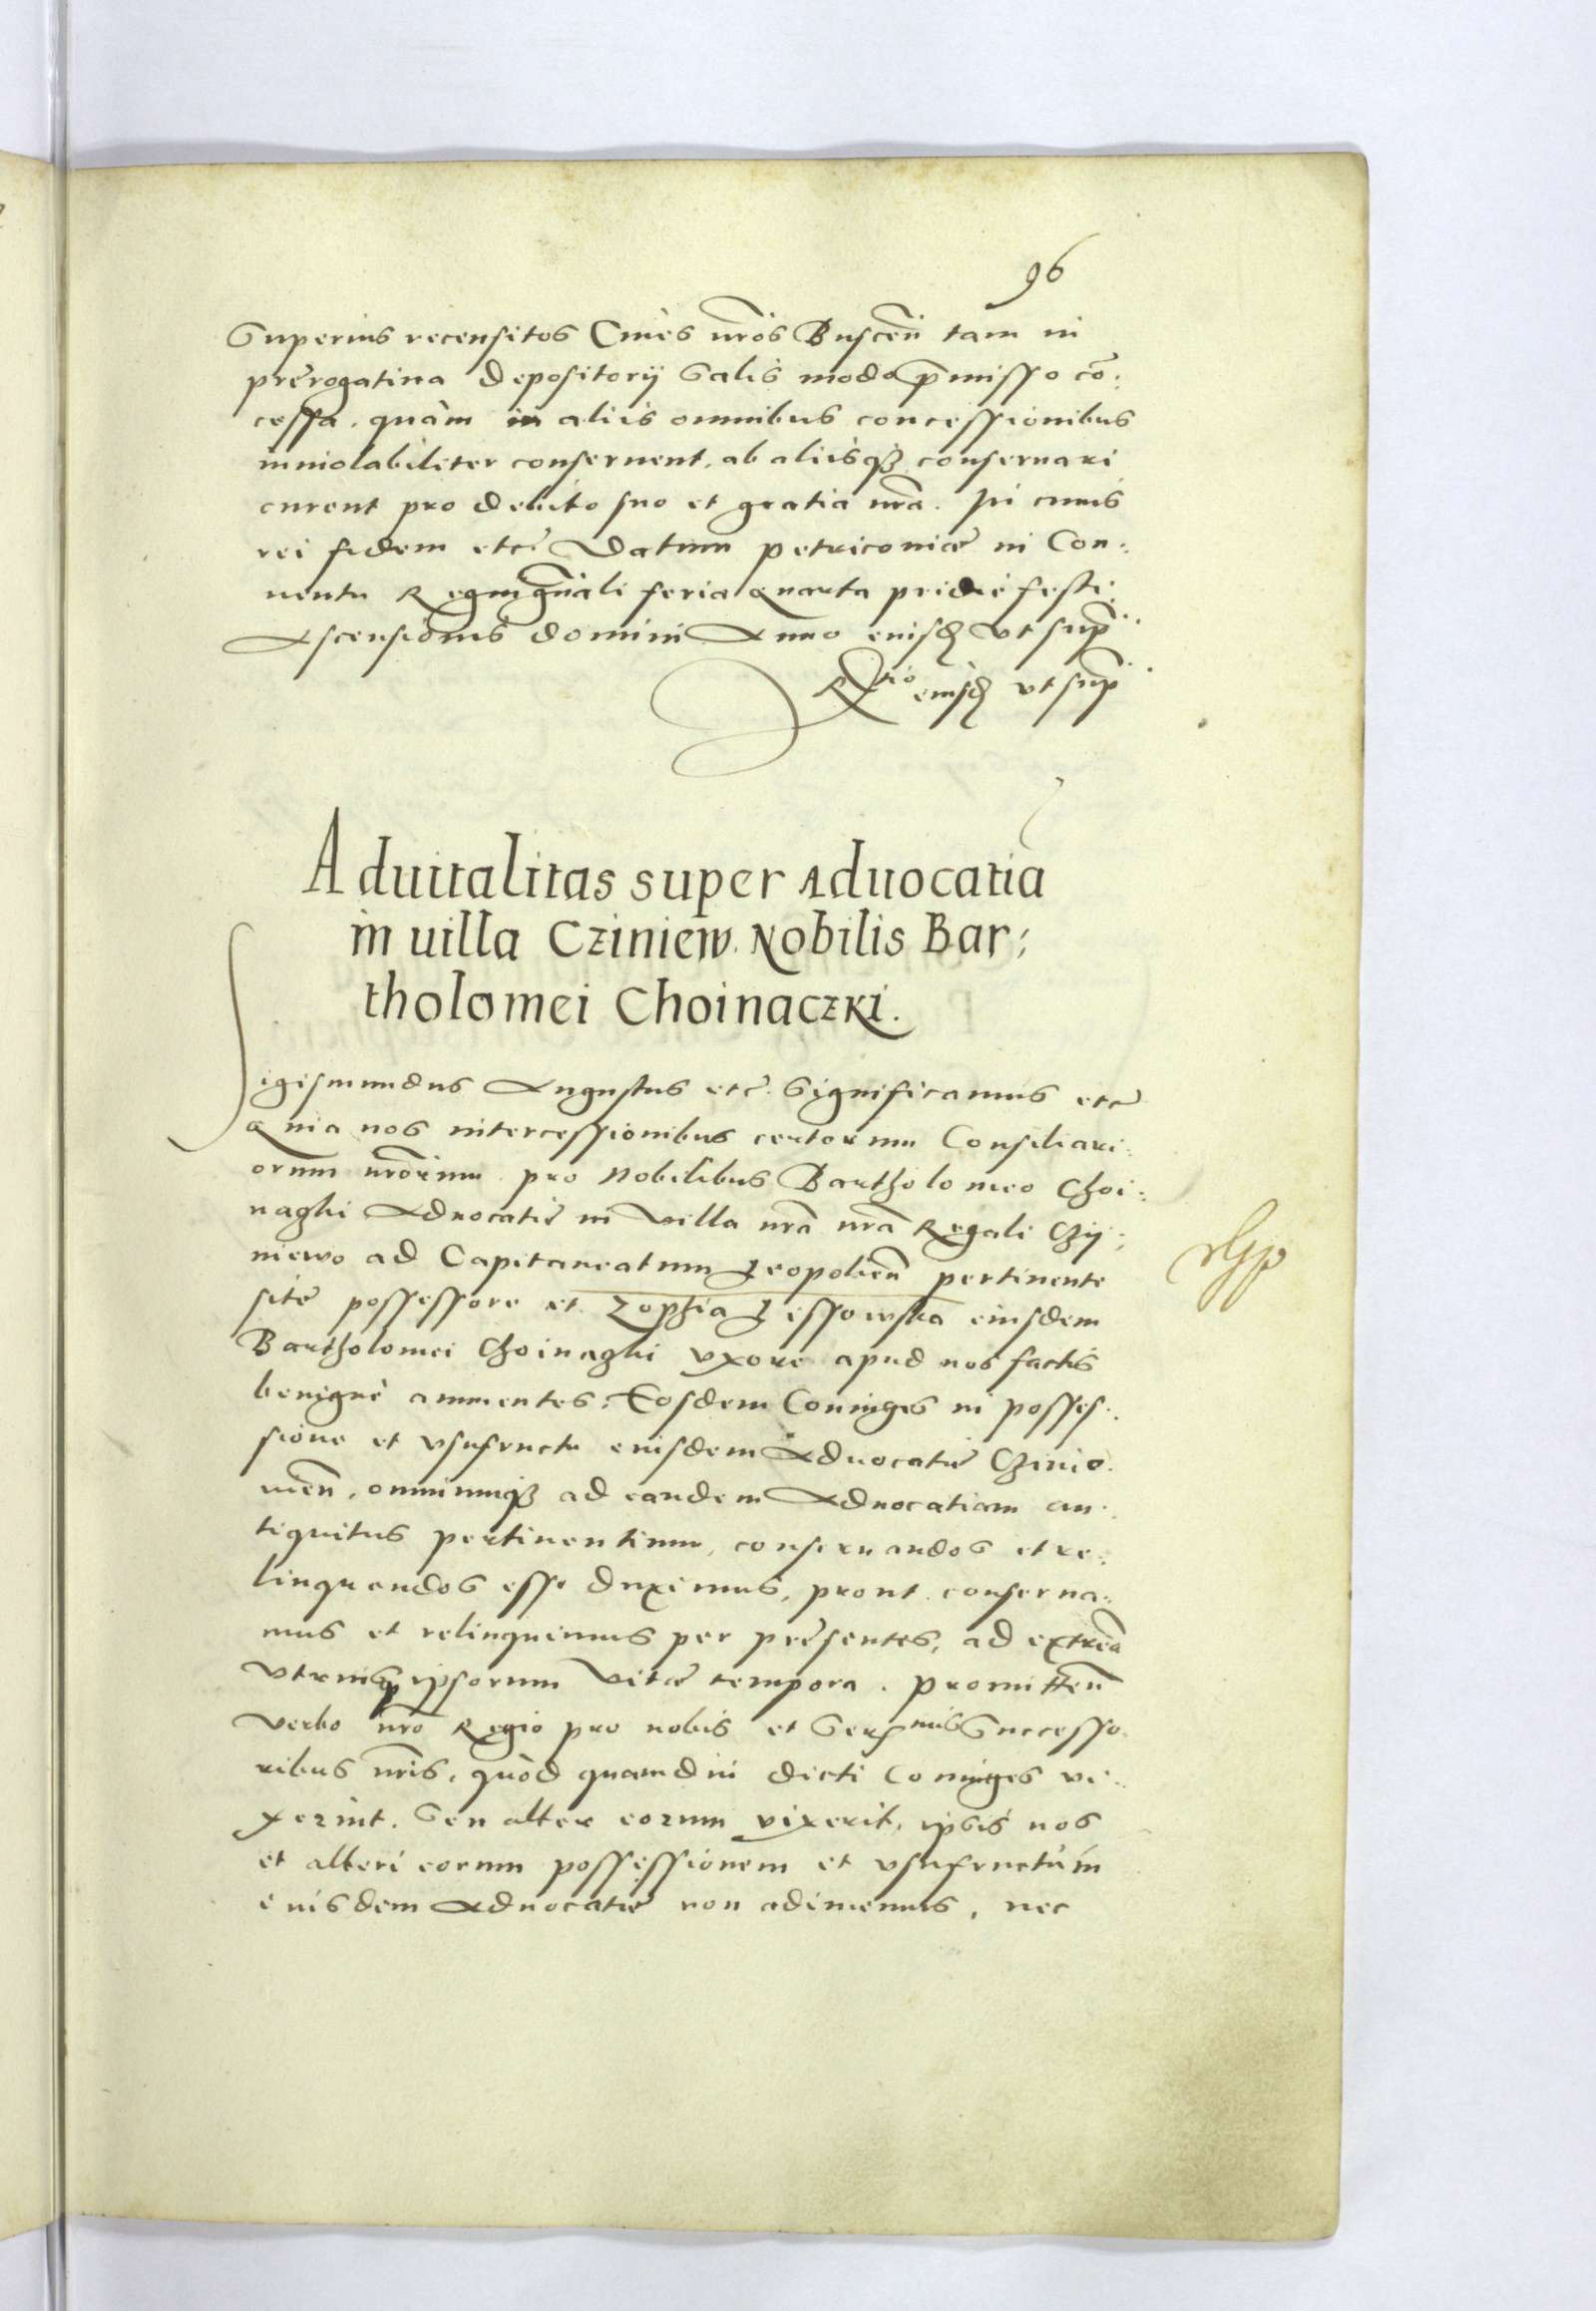 96
Superius recensitos Ciues nr̃os Buscen̄ tam in
prerogatiua Depositorij Salis modo p̄misso cō:
cessa, quàm in aliis omnibus concessionibus
inuiolabiliter conseruent, ab aliisq3 conseruari
curent pro debito suo et gratia nr̃a. In cuius
rei fidem etc̃ Datum petricouiæ in Con:
uentu Regnig̃nali feria quarta pridie festi
Ascensionis domini Anno eiusd ut sup̄
R^tio eiusd ut sup̄
Aduitalitas super aduocatia
in uilla Cziniew. Nobilis Bar:
tholomei Choinaczki.
Sigismundus Augustus etc̃. Significamus etc̃
Quia nos intercessionibus certorum Consiliari:
orum nr̃orum pro Nobilibus Bartholomeo Choi:
naczki Aduocatiæ in Villa nr̃a nr̃a Regali Czy:
niewo ad Capitaneatum Leopolien̄ pertinente
sitæ possessore et Zophia Lessowska eiusdem
Bartholomei Choinaczki vxore apud nos factis
benignè annuentes, Eosdem Coniuges in posses:
sione et vsufructu eiusdem Aduocatiæ Czinie:
uien̄, omniumq3 ad eandem Aduocatiam an:
tiquitus pertinentium, conseruandos et re:
linquendos esse duximus, prout conserua:
mus et relinquimus per præsentes, ad extrēa
vtriusq3 ipsorum vitæ tempora. Promitten̄
verbo nr̃o Regio pro nobis et Ser^mis Successo
ribus nr̃is, quòd quamdiu dicti Coniuges vi:
xerint, Seu alter eorum vixerit, ipsis nos
et alteri eorum possessionem et vsufructum
eiusdem Aduocatiæ non adimemus, nec